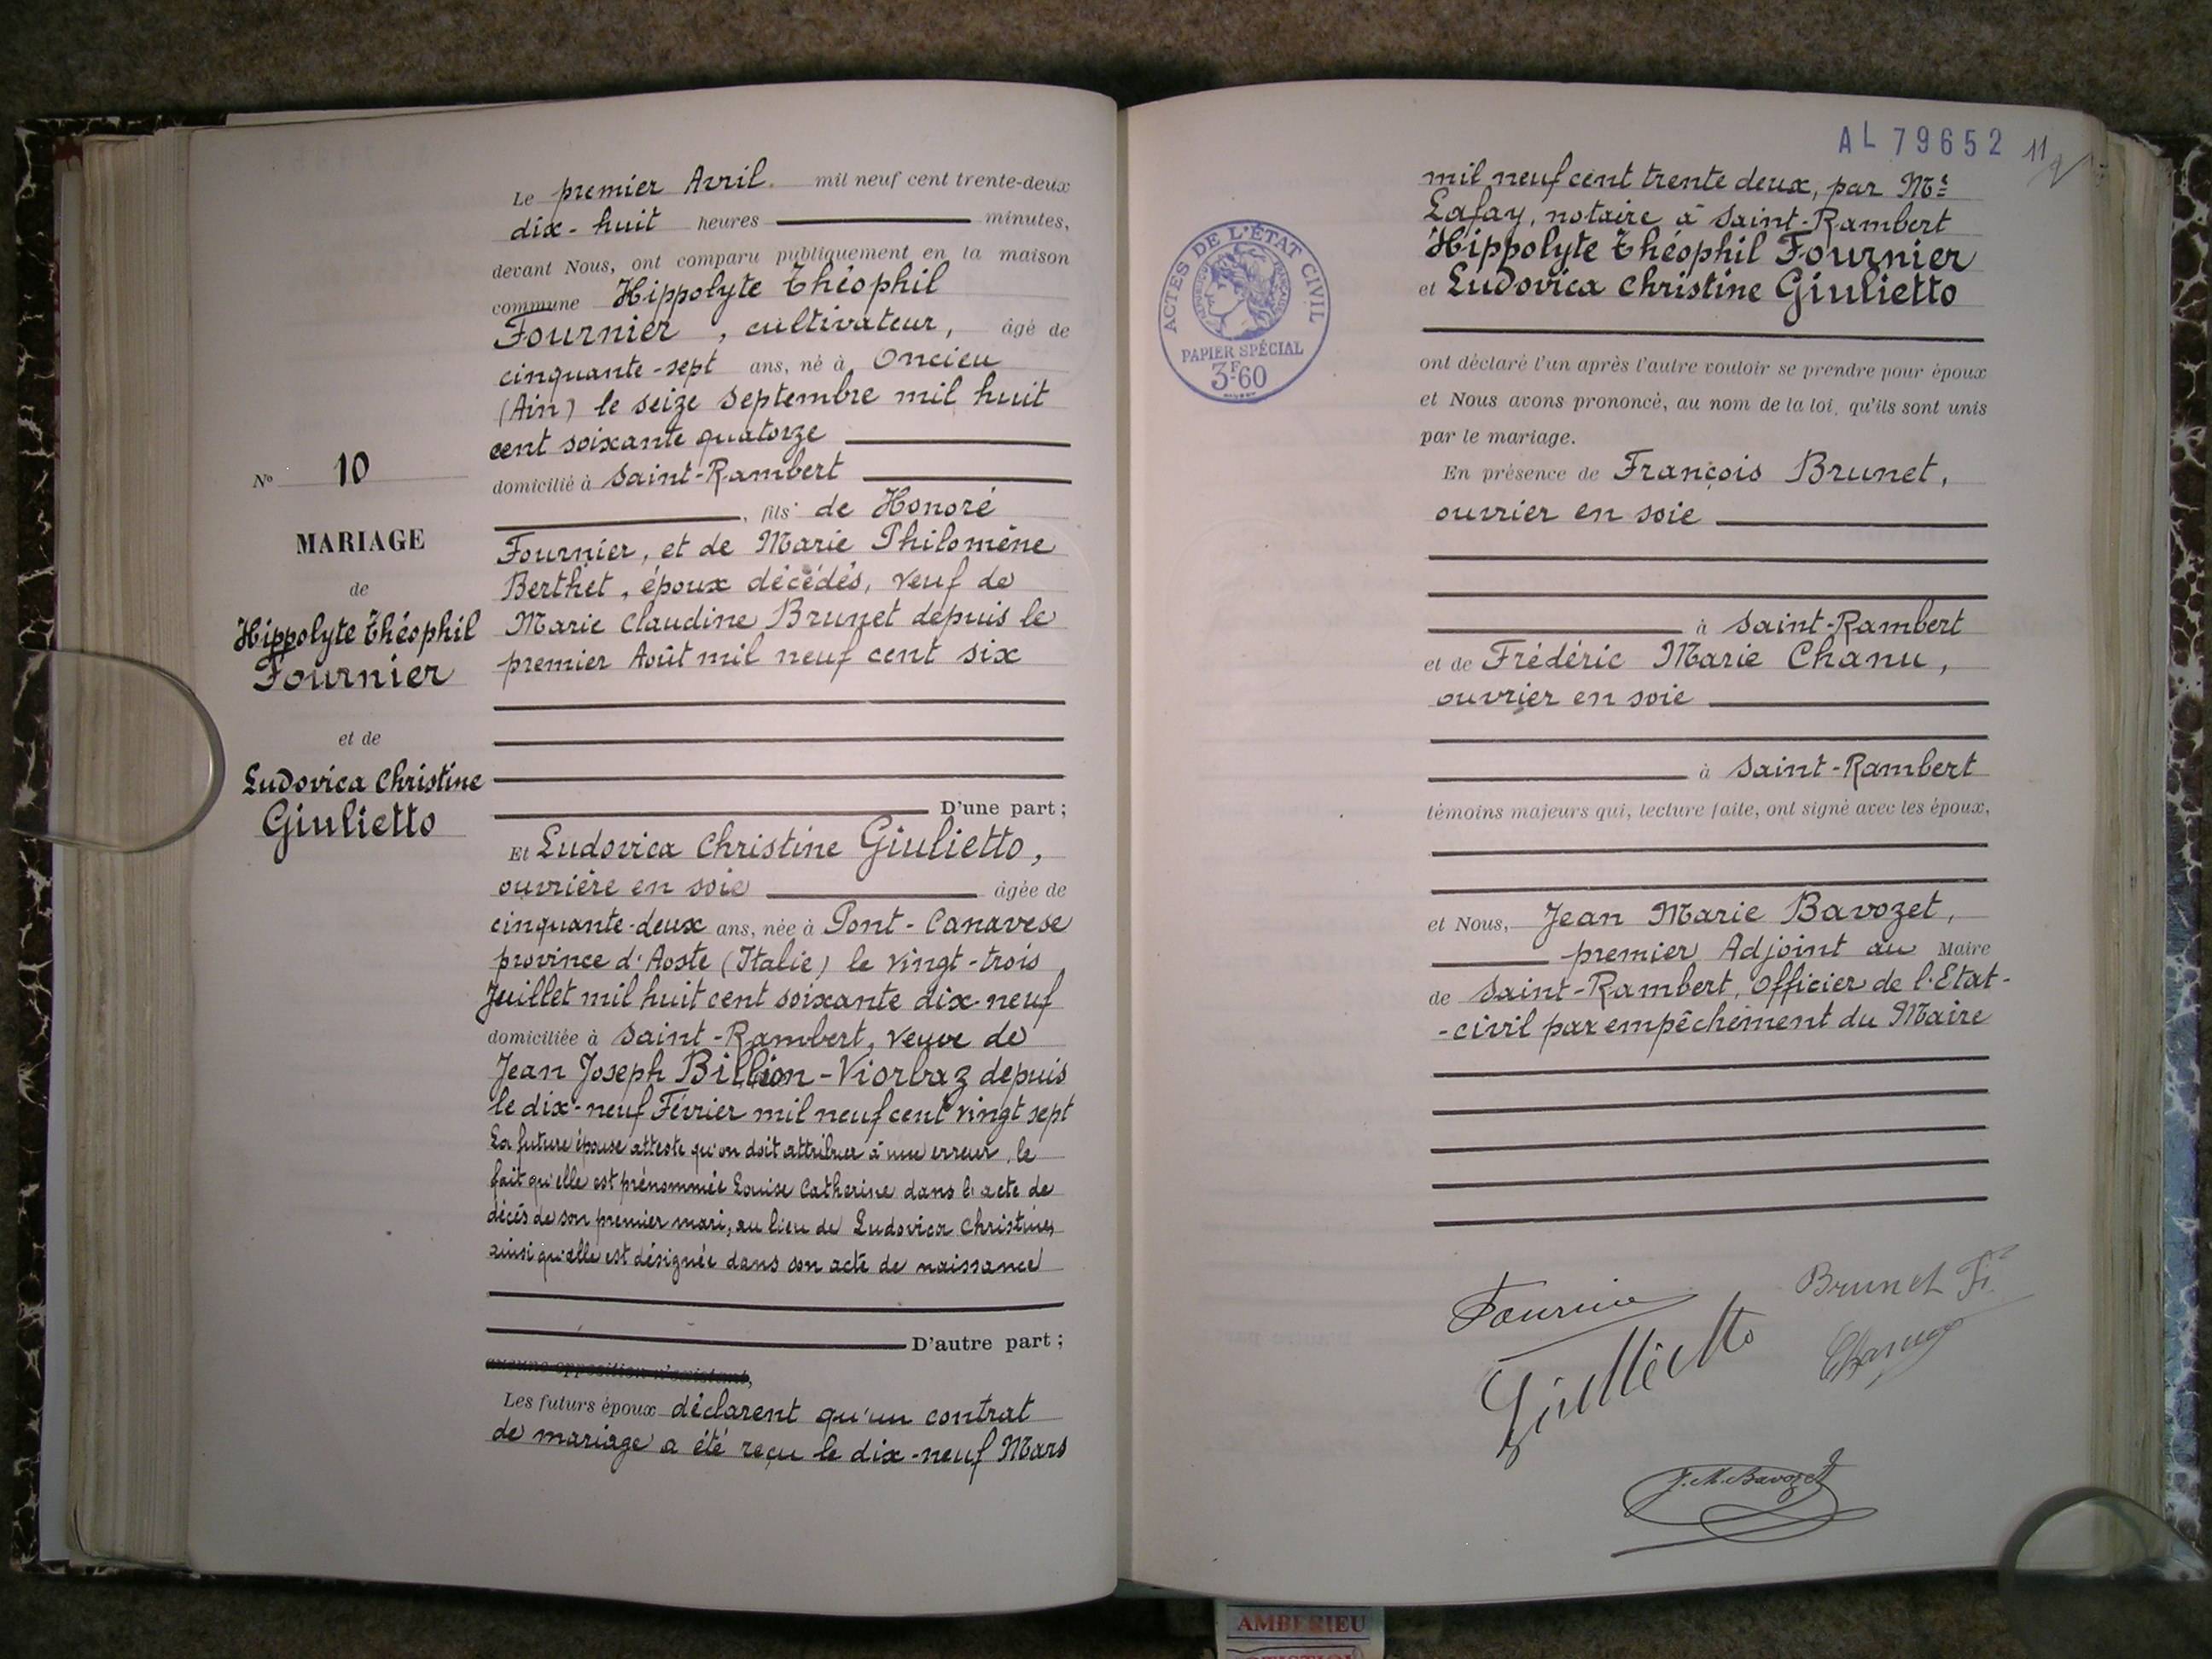 Le premier Avril mil neuf cent trente-deux
dix-huit heures minutes,
devant Nous, ont comparu publiquement en la maison
commune Hippolyte Théophil
Fournier, cultivateur, âgé de
cinquante-sept ans, né à Oncieu
(Ain) le seize Septembre mil huit
cent soixante quatorze
domicilié à Saint-Rambert
, fils de Honoré
Fournier, et de Marie Philomène
Berthet, époux décédés, veuf de
Marie Claudine Brunet depuis le
premier Août mil neuf cent six
D'une part;
Et Ludovica Christine Giulietto,
ouvrière en soie âgée de
cinquante-deux ans, née à Pont-Canavese
province d'Aoste (Italie) le vingt-trois
Juillet mil huit cent soixante dix-neuf
domiciliée à Saint-Rambert, veuve de
Jean Joseph Billion-Viorbaz depuis
le dix-neuf Février mil neuf cent vingt sept
La future épouse atteste qu'on doit attribuer à une erreur, le
fait qu'elle est prénommée Louise Catherine dans l'acte de
décès de son premier mari, au lieu de Ludovica Christine,
ainsi qu'elle est désignée dans son acte de naissance
D'autre part;
aucune opposition n'existant,
Les futurs époux déclarent qu'un contrat
de mariage a été reçu le dix-neuf Mars
No 10
MARIAGE
de
Hippolyte Théophil
Fournier
et de
Ludovica Christine
Giulietto
AL 79652
11
mil neuf cent trente deux, par Me
Lafay, notaire à Saint-Rambert
Hippolyte Théophil Fournier
et Ludovica Christine Giulietto
ACTES DE L'ÉTAT CIVIL
PAPIER SPÉCIAL
3F60
ont déclaré l'un après l'autre vouloir se prendre pour époux
et Nous avons prononcé, au nom de la loi, qu'ils sont unis
par le mariage.
En présence de François Brunet,
ouvrier en soie
à Saint-Rambert
et de Frédéric Marie Chanu,
ouvrier en soie
à Saint-Rambert
témoins majeurs qui, lecture faite, ont signé avec les époux,
et Nous, Jean Marie Bavozet,
premier Adjoint au Maire
de Saint-Rambert, Officier de l'Etat-
-civil par empêchement du Maire
Fournier
Brunet F.
Giulietto
Chanu
J.M. Bavozet
AMBERIEU